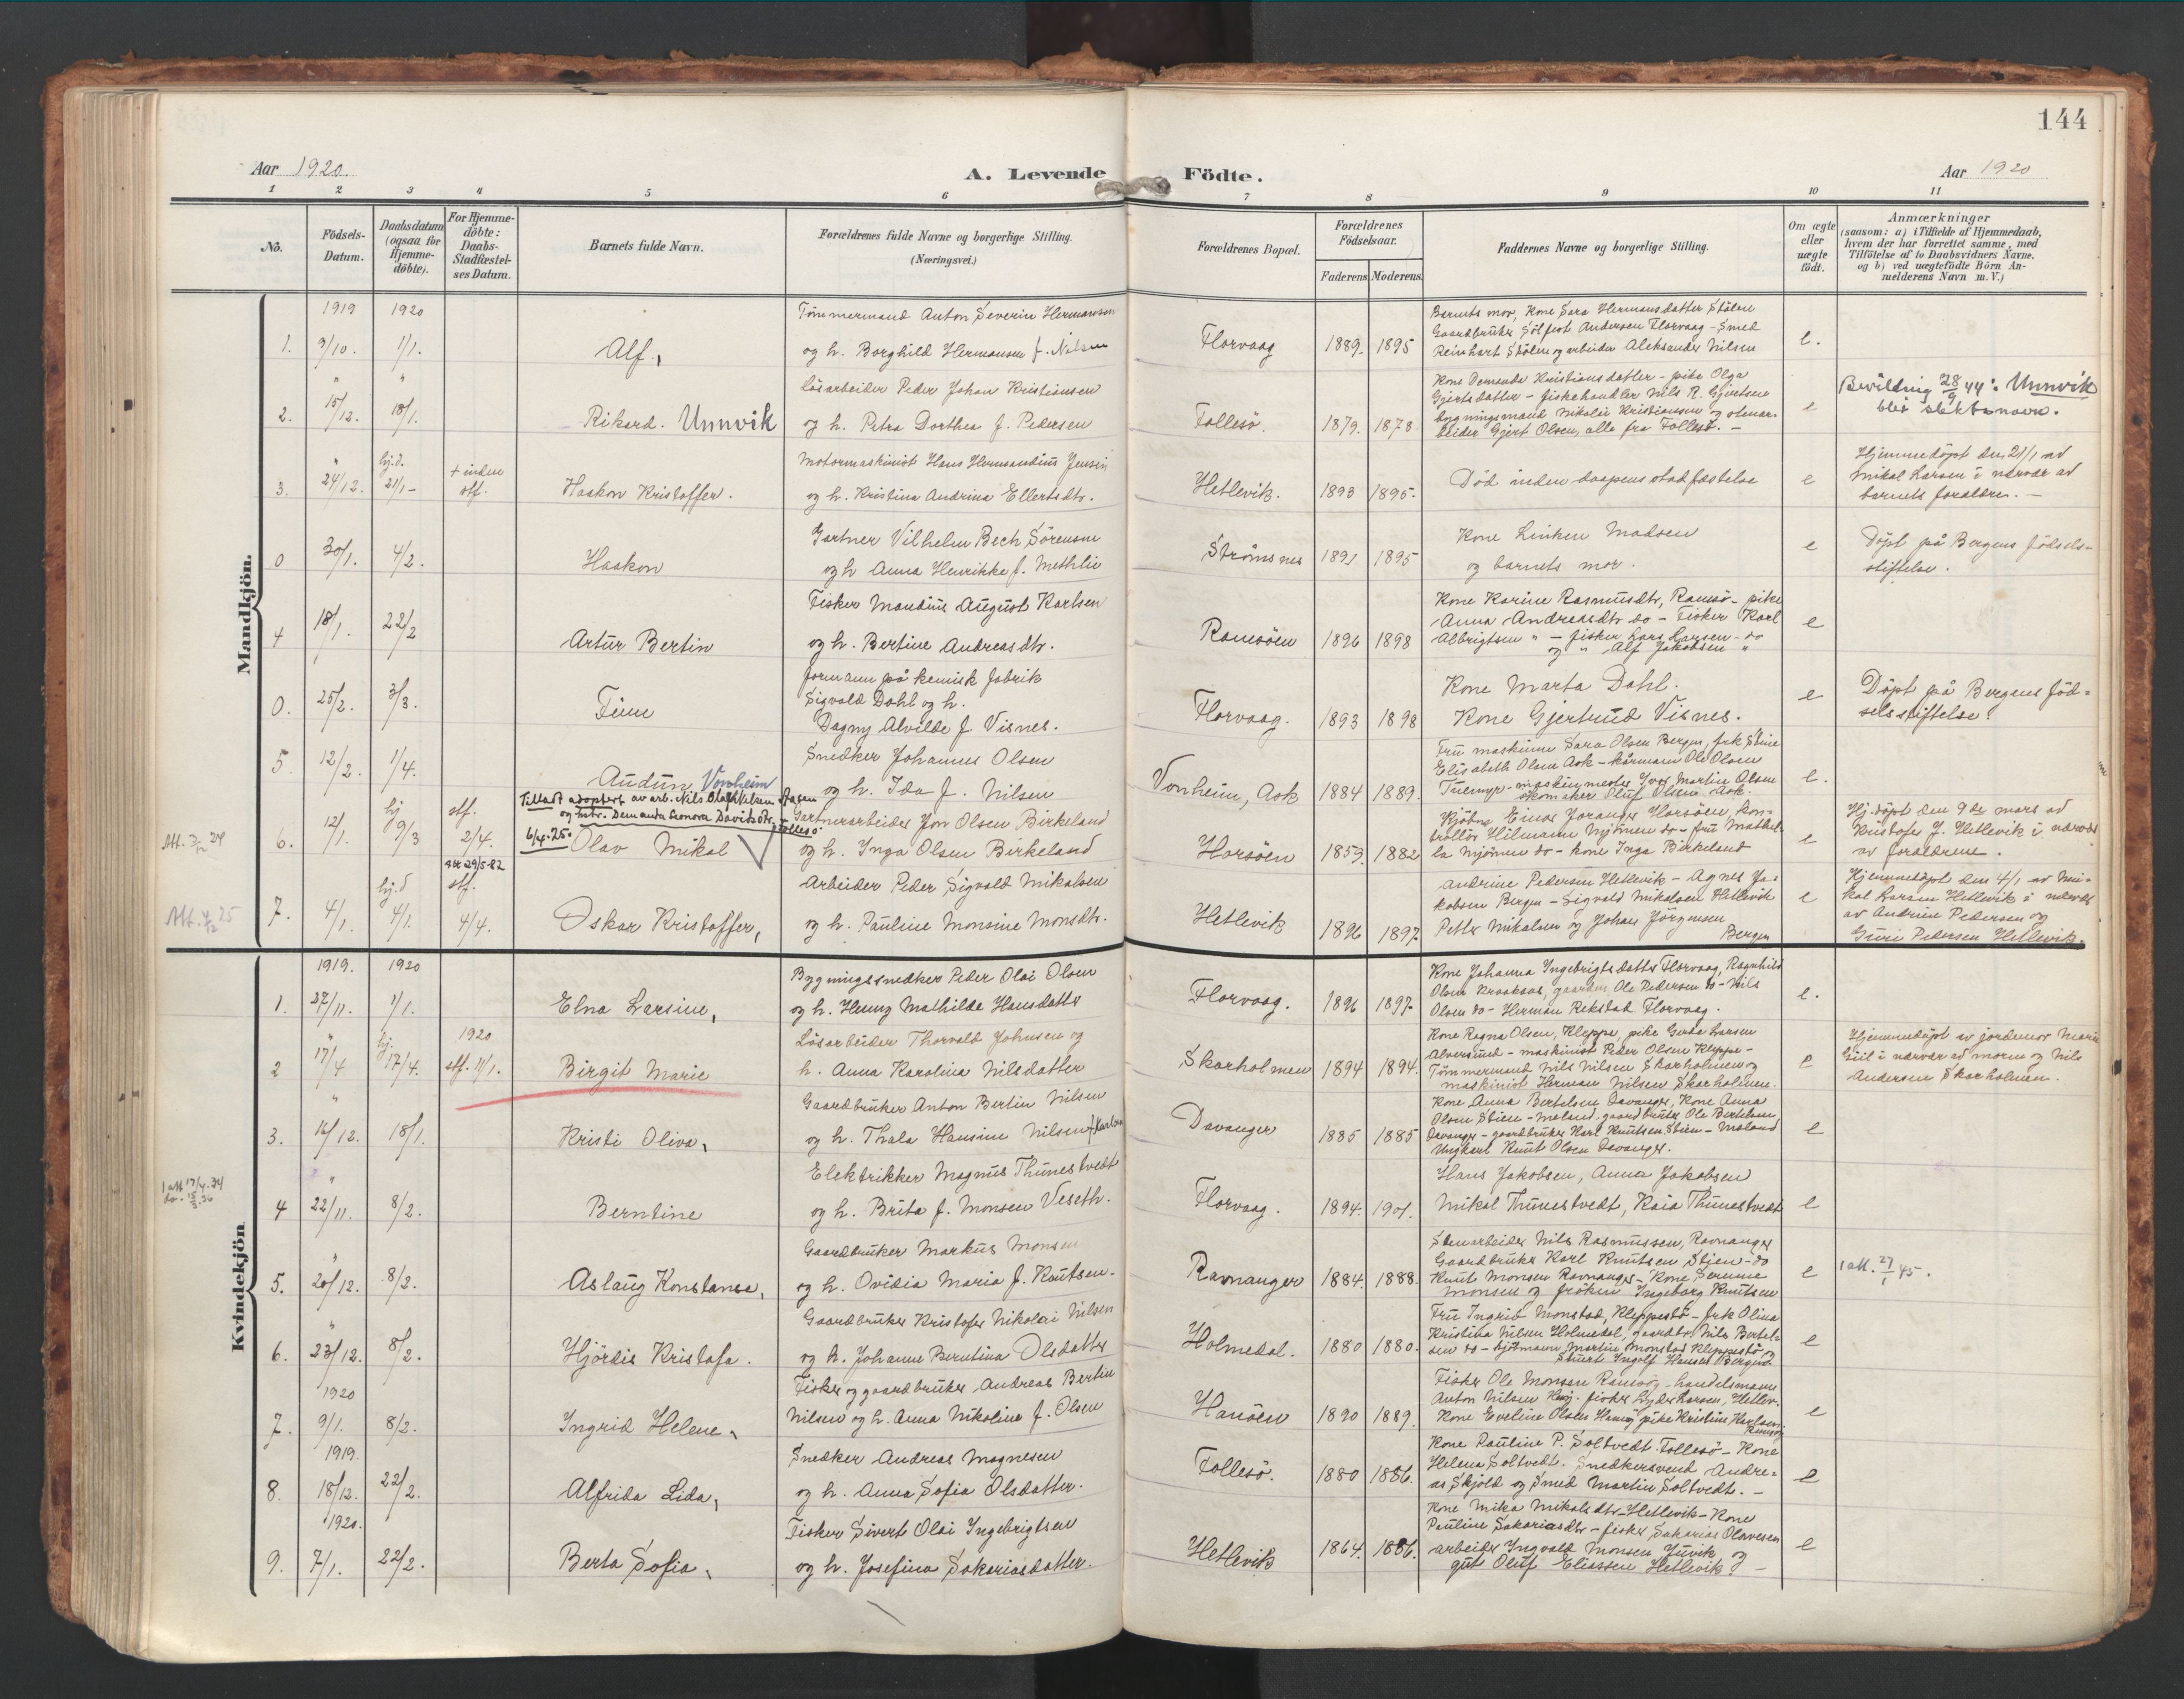 144
Aar 1920.
A. Levende Födte.
Aar 1920
1 2 3 4 5 6 7 8 9 10 11
No.
Födsels-
Datum.
Daabsdatum
(ogsaa for
Hjemme-
döbte).
For Hjemme-
döbte:
Daabs-
Stadfæstel-
ses Datum.
Barnets fulde Navn.
Forældrenes fulde Navne og borgerlige Stilling.
(Næringsvei.)
Forældrenes Bopæl.
Forældrenes
Födselsaar.
Faderens Moderens
Faddernes Navne og borgerlige Stilling.
Om ægte
eller
uægte
födt.
Anmærkninger
(saasom: a) i Tilfælde af Hjemmedaab,
hvem der har forrettet samme, med
Tilföielse af to Daabsvidners Navne.
og b) ved uægtefödte Börn An-
melderens Navn m. V.)
Mandkjön.
1919 1920
1. 9/10. 1/1.
Alf,
Tömmermand Anton Severin Hermansen
og h. Borghild Hermansen f. Nilsen
Florvaag
1889. 1895
Barnets mor, Kone Sara Hermansdatter Stölen
Gaardbruker Sölfest Andersen Florvaag - Smed
Reinhart Stölen og arbeider Aleksander Nilsen
e.
2. 15/12. 18/1.
Rikard. Unnvik
Lösarbeider Peder Johan Kristiansen
og h. Petra Dorthea f. Pedersen
Follesö.
1879. 1878
Kone Demanda Kristiansdatter - pike Olga
Gjertsdatter - fiskehandler Nils R. Gjertsen
bygningsmand Nikolai Kristiansen og stenar-
beider Gjert Olsen, alle fra Follesö. -
e
Bevilling 28/9 44: Unnvik
blir slektsnavn.
3. 24/12. hj.d. 21/1 - + inden stf.
Haakon Kristoffer.
Motormaskinist Hans Hermandius Jensen
og h. Kristina Andrina Ellertsdtr.
Hetlevik.
1893 1895.
Död inden daapens stadfæstelse
e
Hjemmedöpt den 21/1 av
Mikal Larsen i nærvær av
barnets forældre. -
0 30/1. 4/2.
Haakon
Gartner Vilhelm Bech Sörensen
og h Anna Henrikke f. Methlie
Strömsnes
1891 1895
Kone Linken Madsen
og barnets mor.
e
Döpt på Bergens födsels-
stiftelse.
4 18/1. 22/2
Artur Bertin
Fisker Mandius August Karlsen
og h. Bertine Andreasdtr.
Ramsöen
1896 1898
Kone Karine Rasmusdtr, Ramsö - pike
Anna Andreasdtr do - Fisker Karl
Albrigtsen " - fisker Lars Larsen - do
og " Alf Jakobsen "
e
0. 25/2. 3/3.
Finn
Formann på kemisk fabrik
Sigvald Dahl og h.
Dagny Alvilde f. Visnes.
Florvaag.
1893 1898
Kone Marta Dahl.
Kone Gjertrud Visnes.
e
Döpt på Bergens föd-
selsstiftelse.
5. 12/2. 1/4.
Audun Vonheim
Snedker Johannes Olsen
og h. Ida f. Nilsen
Vonheim, Ask
1884 1889.
Fru maskinm Sara Olsen Bergen, frk Stine
Elisabeth Olsen Ask - körmann Ole Olsen
maskinmester Iver Martin Olsen
skomaker Oluf Olsen Ask.
e.
Att. 3/12 24
6. 12/1. hj 9/3 stf. 2/4.
Tillatt adoptert av arb. Nils Olai Mikkelsen
og hstr. Demanda Leonora Davidsdtr, Follesö
6/4.25.
Olav Mikal
Gartnerarbeider Jon Olsen Birkeland
og h. Inga Olsen Birkeland
Horsöen
1853. 1882
Kjöbm Einar Joranger Horsöen, kon-
trollör Hilmann Mjömen do - fru Mathil-
la Mjömen do - kone Inga Birkeland
e
Hj. döpt den 9de mars av
Kristofer J. Hetlevik i nærvær
av forældrene.
Att. 4/12 25
7. 4/1. hj.d 4/1. stf. 4/4.
Oskar Kristoffer,
Arbeider Peder Sigvald Mikalsen
og h. Pauline Monsine Monsdtr.
Hetlevik
1896 1897.
Andrine Pedersen Hetlevik - Agnes Ja-
kobsen Bergen - Sigvald Mikalsen Hetlevik
Petter Mikalsen og Johan Jörgensen
Bergen
e
Hjemmedöpt den 4/1 av Mi-
kal Larsen Hetlevik i nærvær
av Andrine Pedersen og
Guri Pedersen Hetlevik.
Kvindekjön
1919. 1920
1. 27/11. 1/1.
Elna Larsine,
Bygningssnedker Peder Olai Olsen
og h. Henny Mathilde Hansdatter
Florvaag.
1896 1897.
Kone Johanna Ingebrigtsdatter Florvaag, Ragnhild
Olsen Kraakaas, gaardm Ole Pedersen do - Nils
Olsen do - Herman Rekstad Florvaag.
e.
2 17/4 hj. 17/4. 1920 stf. 1/1.
Birgit Marie
Lösarbeider Thorvald Johnsen og
h. Anna Karolina Nilsdatter
Skarholmen
1894 1894.
Kone Ragna Olsen, Kleppe, pike Gerda Larsen
Alversund - maskinist Peder Olsen Kleppe -
Tömmermand Nils Nilsen Skarholmen og
maskinist Herman Nilsen Skarholmen.
e
Hjemmedöpt av jordmor Marie
i nærvær av moren og Nils
Andersen Skarholmen.
3. 16/12. 18/1.
Kristi Oliva,
Gaardbruker Anton Bertin Nilsen
og h. Thala Hansine Nilsen
Davanger
1885 1885
Kone Anna Bertelsen Davanger, Kone Anna
Olsen Stien - Meland. gaardbruker Ole Bertelsen
Davanger - gaardbruker Karl Knutsen Stien - Meland
Ungkarl Knut Olsen Davanger.
e
1 att 17/4.34
do. 15/3.36
4 22/11. 8/2.
Berntine
Elektrikker Magnus Thunestvedt
og h. Brita f. Monsen Veseth.
Florvaag.
1894. 1901.
Hans Jakobsen, Anna Jakobsen
Mikal Thunestvedt, Kaia Thunestvedt
e
5. 20/12. 8/2.
Aslaug Konstanse,
Gaardbruker Markus Monsen
og h. Ovidia Maria f. Knutsen.
Ravnanger
1884. 1888.
Stenarbeider Nils Rasmussen, Ravnanger
Gaardbruker Karl Knutsen Stien - do
Knut Monsen Ravnanger - Kone Serunne
Monsen og fröken Ingeborg Knutsen
e
1 att. 27/1 45.
6. 23/12. 8/2.
Hjördis Kristofa.
Gaardbruker Kristofer Nikolai Nilsen
og h. Johanne Berntina Olsdatter
Holmedal.
1880 1880.
Fru Ingrid Monstad, Kleppestö - frk Olina
Kristina Nilsen Holmedal, gaardbr. Nils Bertel-
sen do - kjöbmann Martin Monstad Kleppestö og
Stuert Ingolf Hansen Bergen
e
1920
7. 9/1. 8/2.
Ingrid Helene,
Fisker og gaardbruker Andreas Bertin
Nilsen og h. Anna Nikolina f. Olsen
Hanöen
1890 1889.
Fisker Ole Monsen Ramsöy - handelsmann
Anton Nilsen Hanöy. fisker Lyder Larsen, Hetlev.
Kone Eveline Olsen Hanöy pike Kristine Karlsen
Ramsöy
e
1919.
8. 18/12. 22/2.
Alfrida Lida,
Snedker Andreas Magnesen
og h. Anna Sofia Olsdatter.
Follesö.
1880 1886.
Kone Pauline P. Soltvedt. Follesö - Kone
Helena Soltvedt. Snedkersvend Andre-
as Skjold og Smed Martin Soltvedt. -
e
1920.
9. 7/1. 22/2.
Berta Sofia,
Fisker Sivert Olai Ingebrigtsen
og h. Josefina Sakariasdatter.
Hetlevik
1864. 1886.
Kone Mika Mikalsdtr - Hetlevik - Kone
Pauline Sakariasdtr - fisker Sakarias Olavesen
arbeider Ingvald Monsen Juvik og
gut Oluf Eliassen Hetlevik -
e